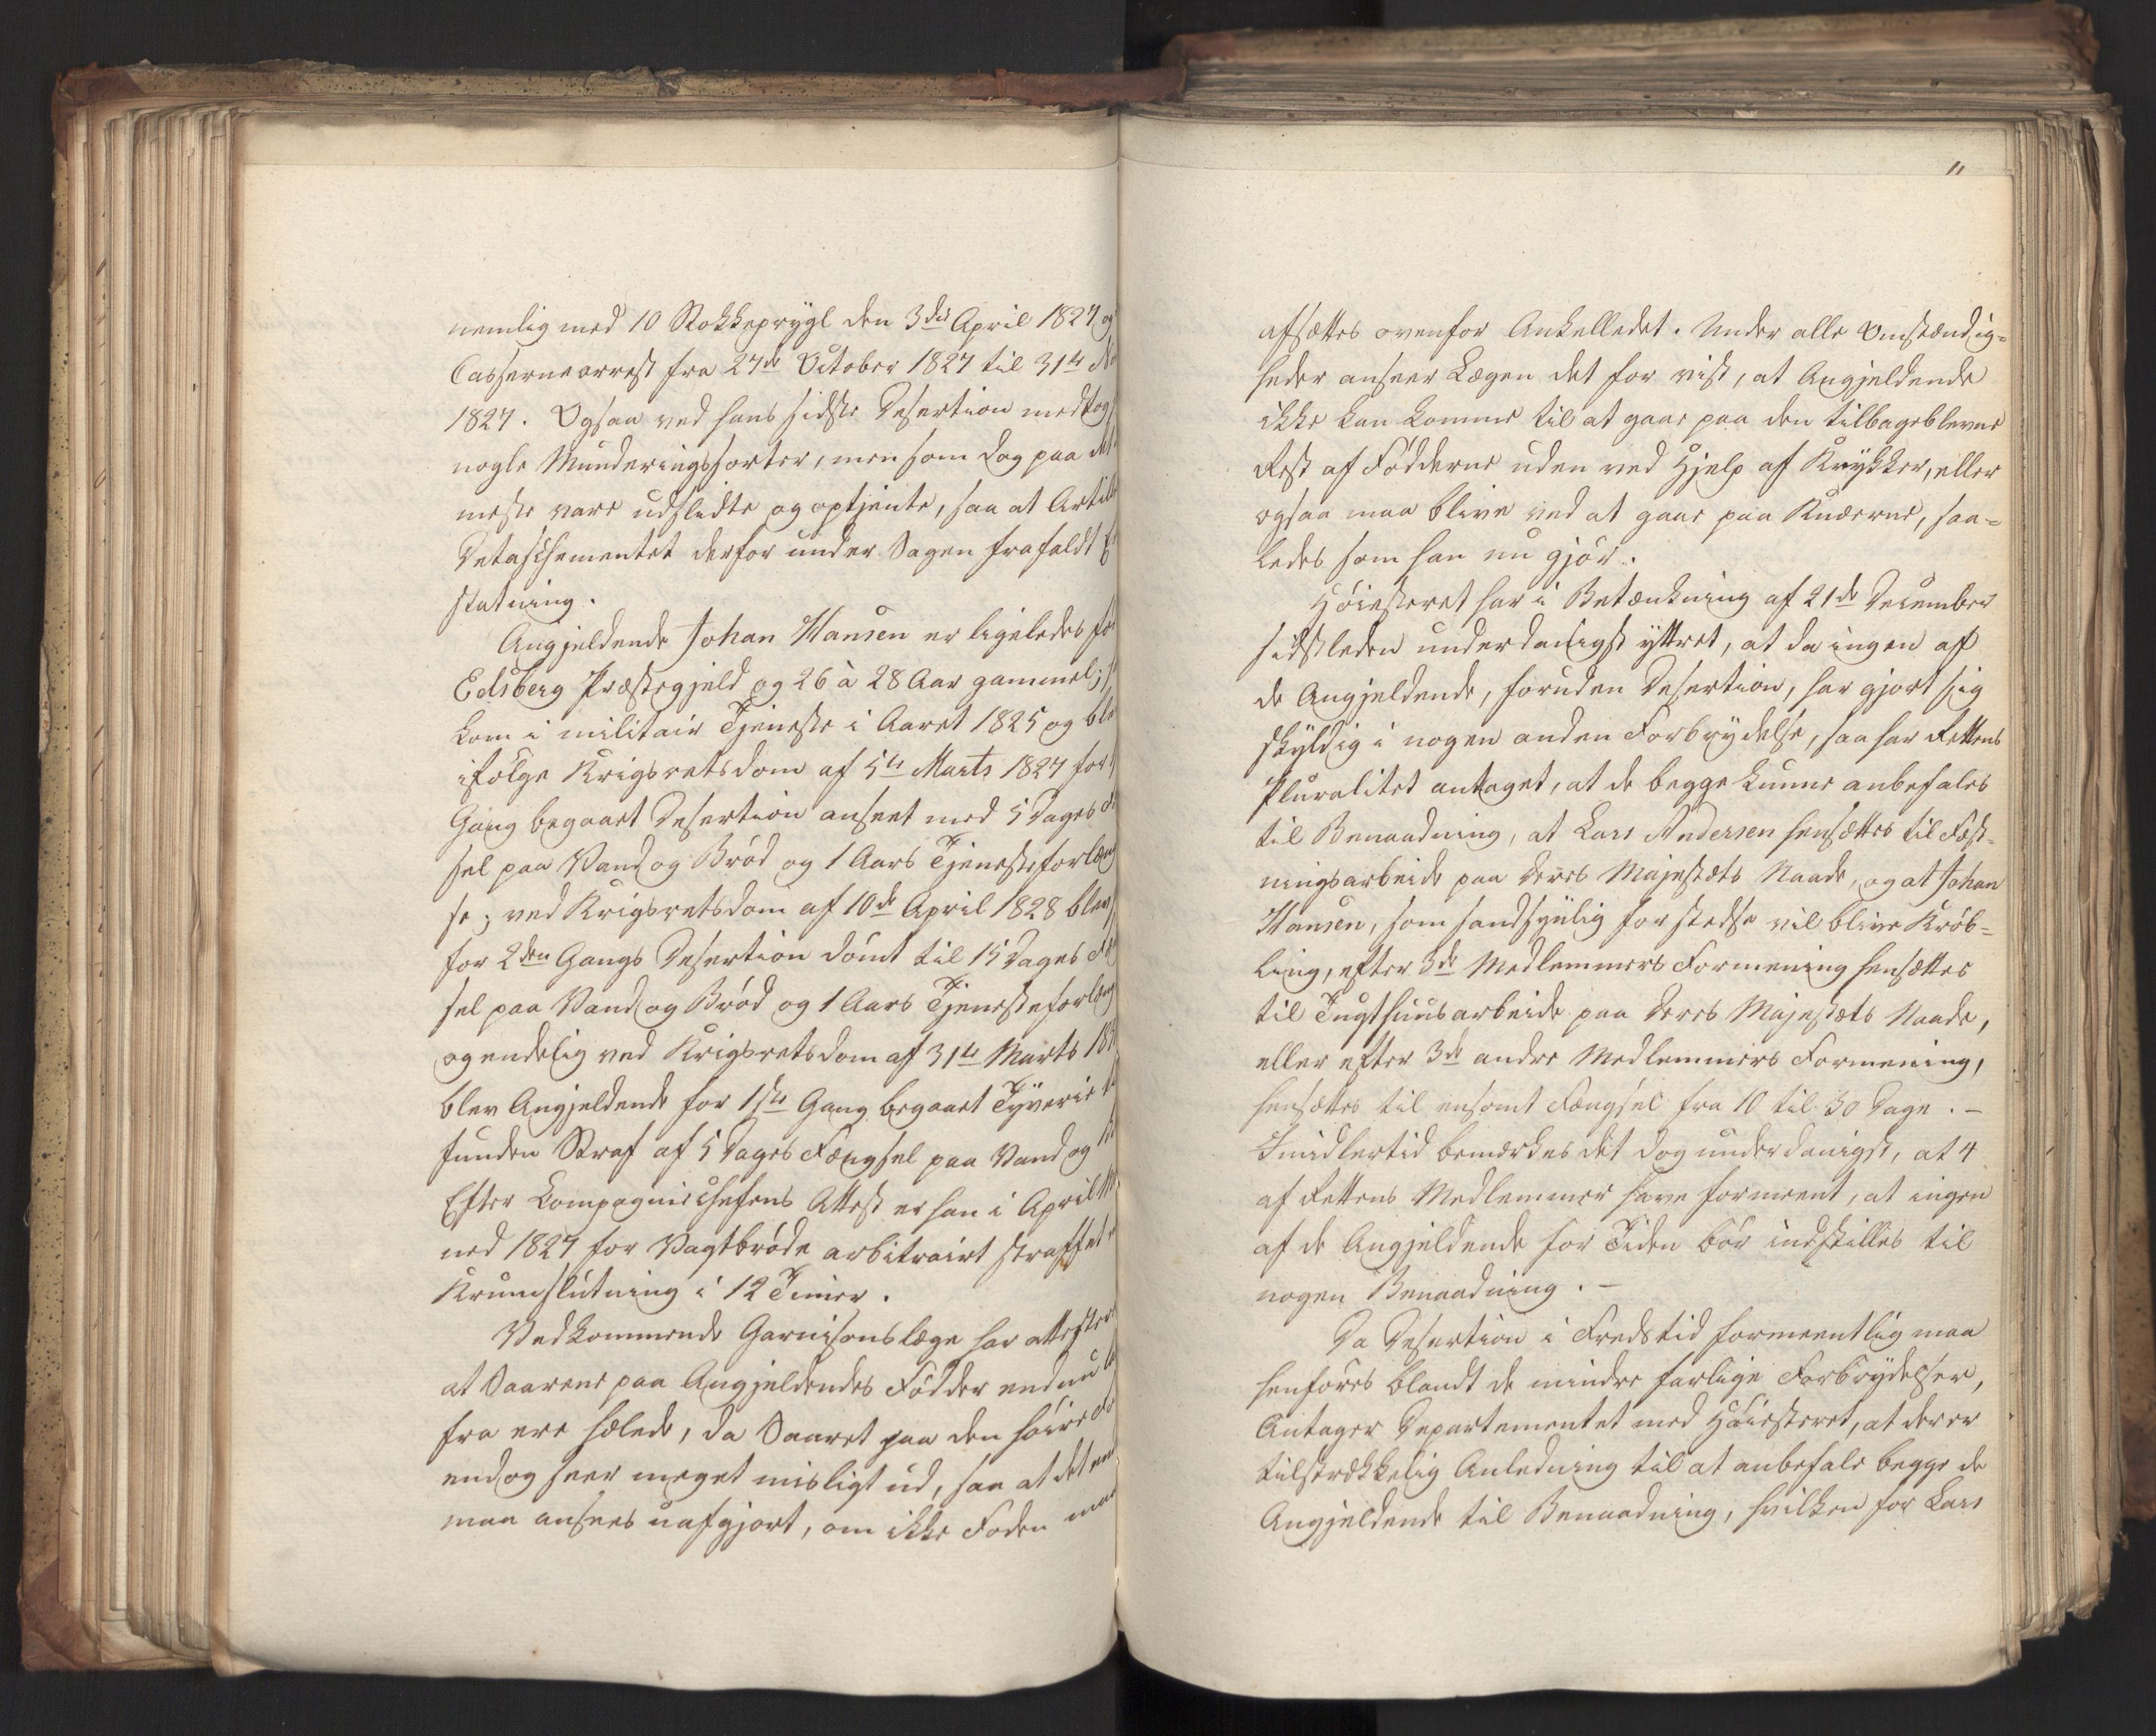 nemlig med 10 Stokkeprygl den 3die April 1827 og
Cassernearrest fra 27de October 1827 til 31te
1827. Ogsaa ved hans sidste Desertion medtog
nogle Munderingssorter, men som dog paa det
meste vare udslidte og optjente, saa at
Detaschementet derfor under Sagen frafaldt
statning.
Angjeldende Johan Hansen er ligeledes
Edsberg Præstegjeld og 26 à 28 Aar gammel;
kom i militair Tjeneste i Aaret 1825 og blev
ifølge Krigsretsdom af 5te Marts 1827 for
Gang begaaet Desertion anseet med 5 Dages
sel paa Vand og Brød og 1 Aars Tjenesteforlæng
se; ved Krigsretsdom af 10de April 1828 blev
for 2den Gangs Desertion dømt til 15 Dages
sel paa Vand og Brød og 1 Aars Tjenesteforlæng
og endelig ved Krigsretsdom af 31te Marts
blev Angjeldende for 1ste Gang begaaet Tyverie
funden Straf af 5 Dages Fængsel paa Vand og
Efter Compagniechefens Attest er han i April
ned 1827 for Vagtbrøde arbitrairt straffet
Krumslutning i 12 Timer.
Vedkommende Garnisonslæge har attesteret
at Saarene paa Angjeldendes Fødder endnu
fra ere hælede, da Saaret paa den høire
endog seer meget misligt ud, saa at det
maa ansees uafgjort, om ikke Foden maa
11
afsættes ovenfor Ankelledet. Under alle Omstændig=
heder anseer Lægen det for vist, at Angjeldende
ikke kan komme til at gaae paa den tilbageblevne
Rest af Fødderne uden ved Hjelp af Krykker, eller
ogsaa maa blive ved at gaae paa Knæerne, saa=
ledes som han nu gjør.
Høiesteret har i Betænkning af 21de December
sidstleden underdanigst yttret, at da ingen af
de Angjeldende, foruden Desertion, har gjort sig
skyldig i nogen anden Forbrydelse, saa har Rettens
Pluralitet antaget, at de begge kunne anbefales
til Benaadning, at Lars Andersen hensættes til Fæst=
ningsarbeide paa Deres Majestæts Naade, og at Johan
Hansen, som sandsynlig for stedse vil blive Krøb=
ling, efter 3de Medlemmers Formening hensættes
til Tugthuusarbeide paa Deres Majestæts Naade,
eller efter 3de andre Medlemmers Formening,
hensættes til ensomt Fængsel fra 10 til 30 Dage. –
Imidlertid bemærkes det dog underdanigst, at 4
af Rettens Medlemmer have formeent, at ingen
af de Angjeldende for Tiden bør indstilles til
nogen Benaadning. –
Da Desertion i Fredstid formeentlig maa
henføres blandt de mindre farlige Forbrydelser,
Antager Departementet med Høiesteret, at der er
tilstrækkelig Anledning til at anbefale begge de
Angjeldende til Benaadning, hvilken for Lars